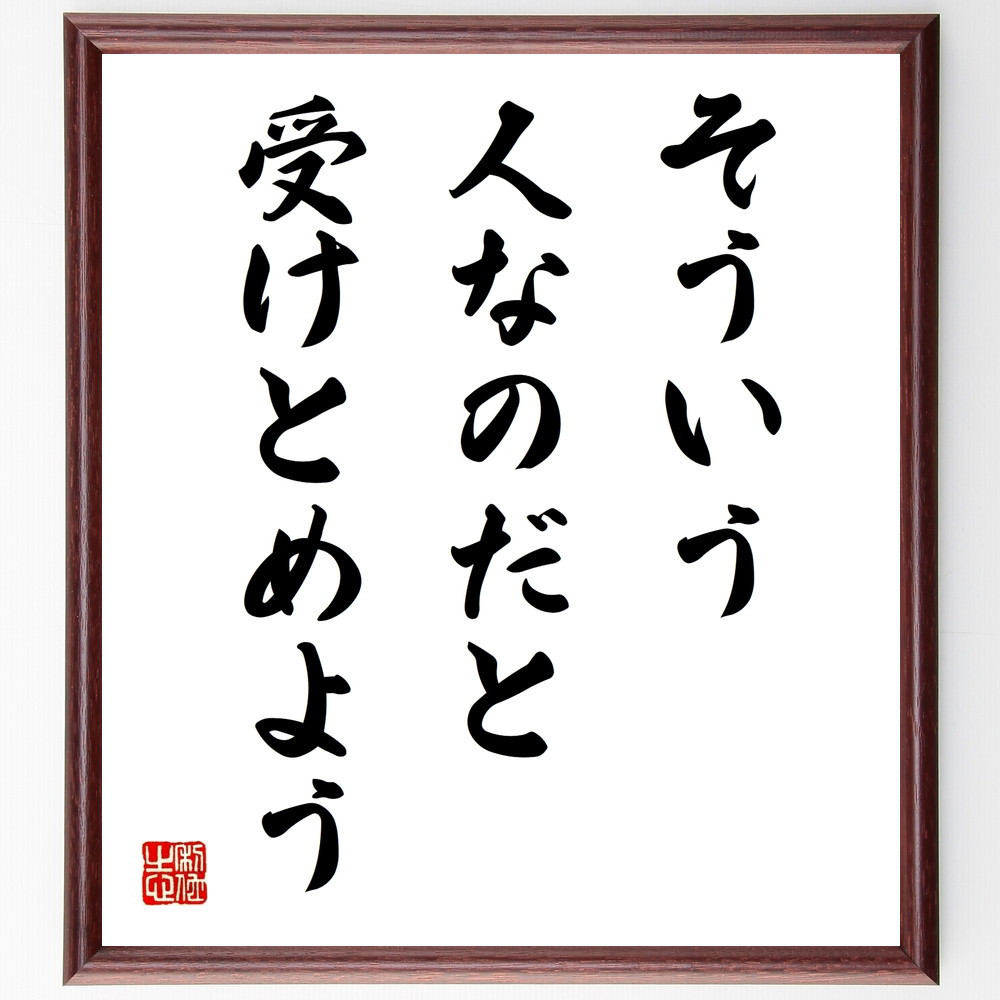 そういう
人なのだと
受けとめよう